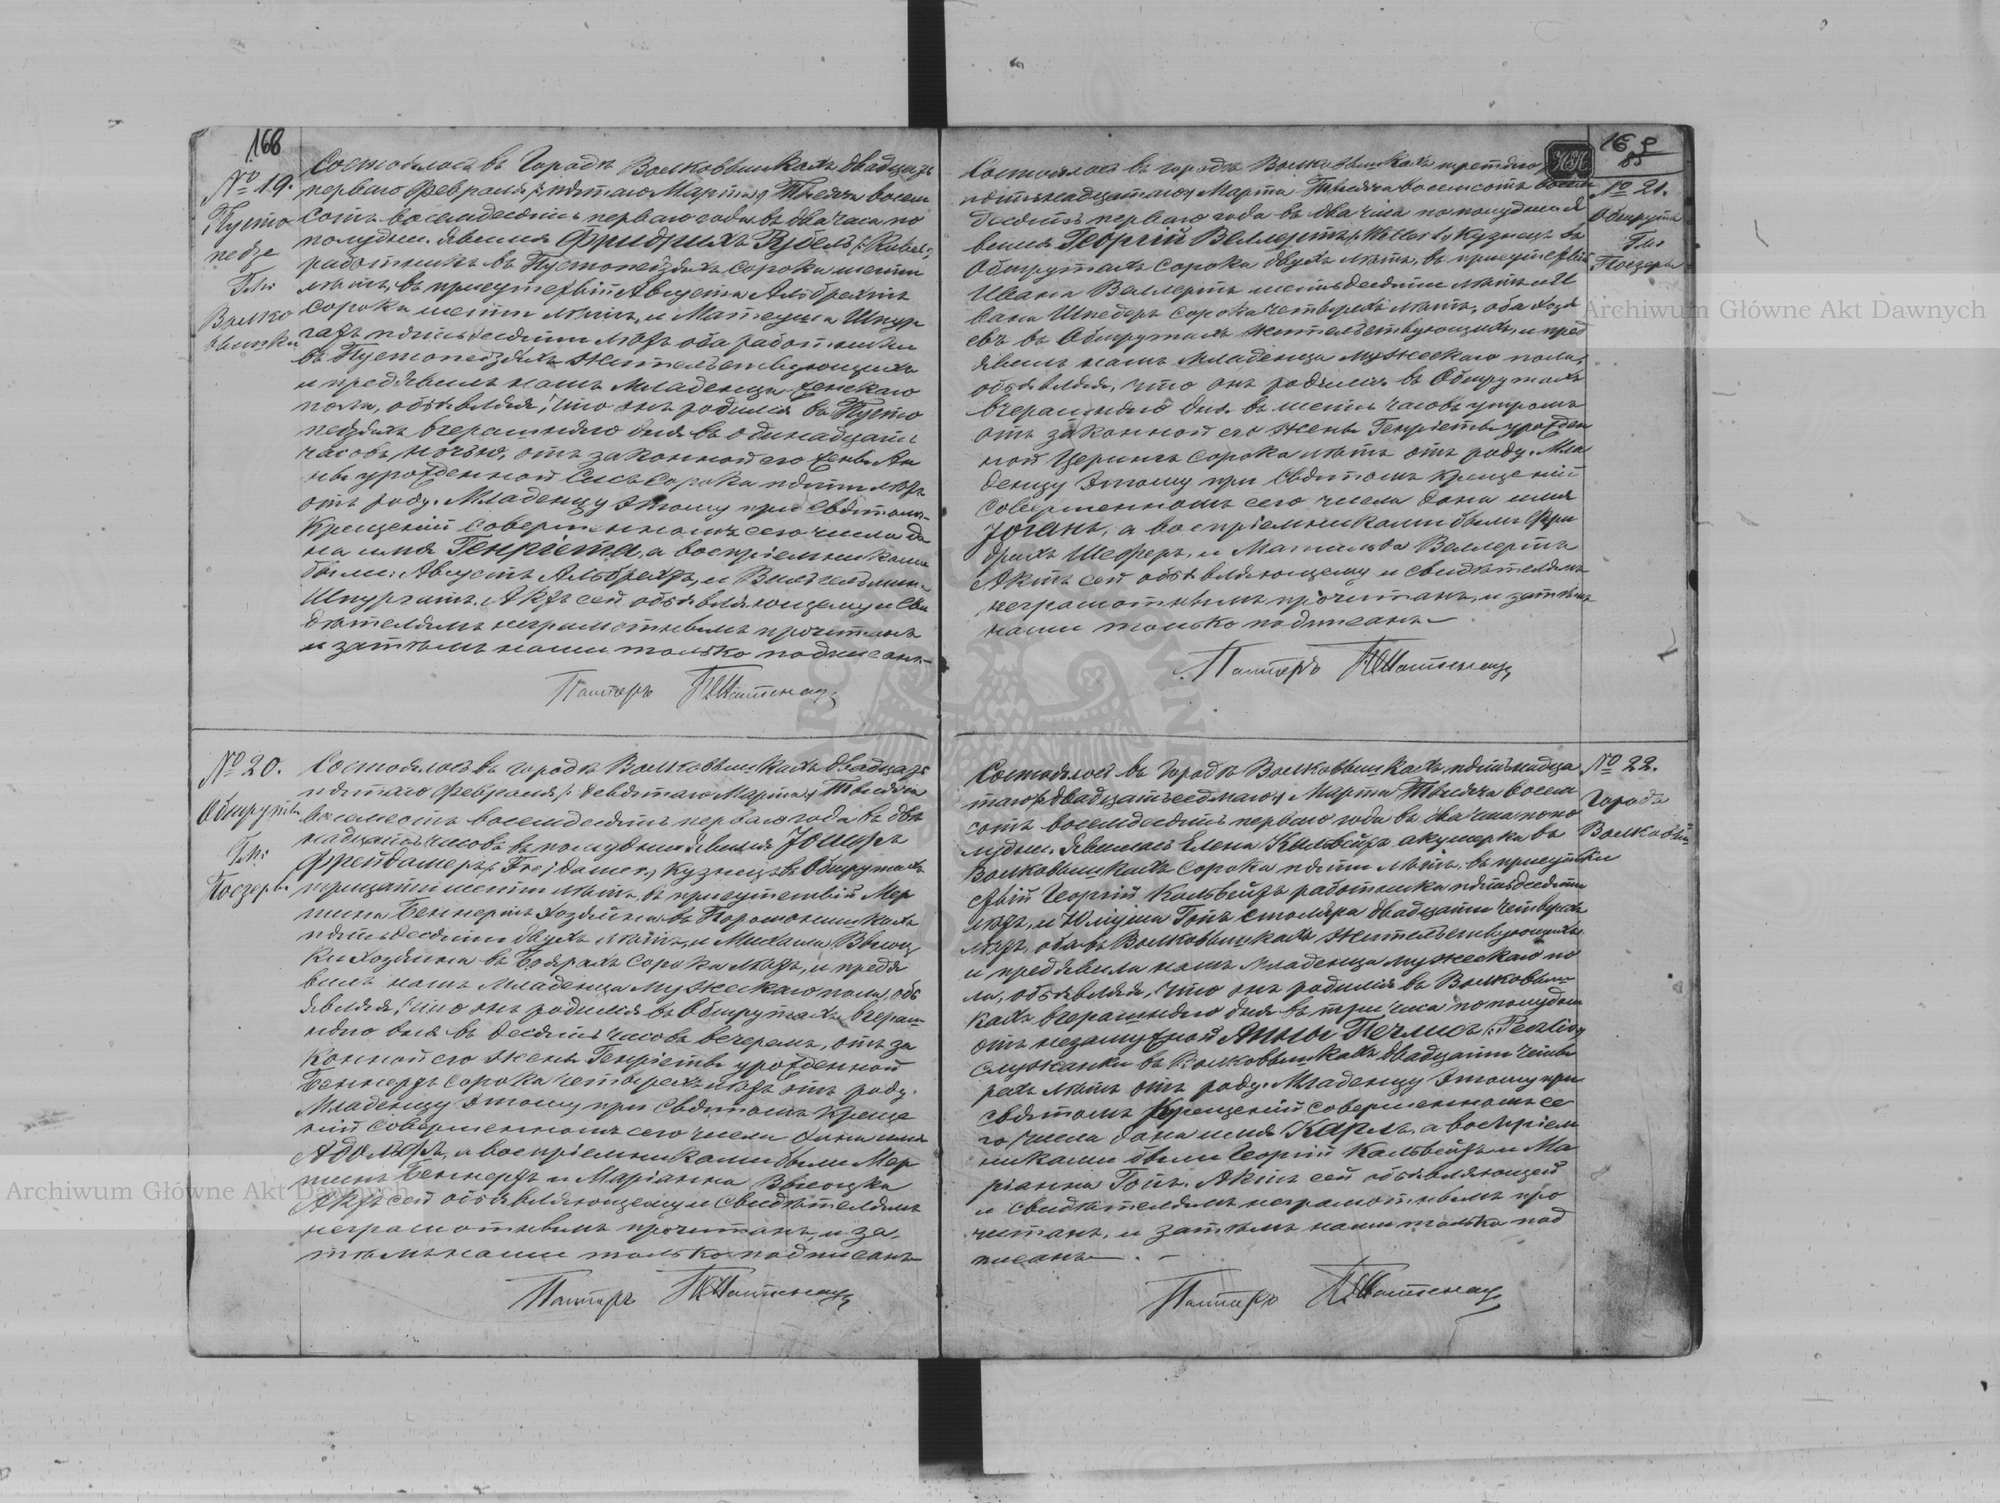 168
№ 19.
Пусто
педзе
Гм:
Волко
вышки
Состоялось въ Городѣ Волковышкахъ двадцать
перваго Февраля /: пятаго Марта :/ Тысяча восем
сотъ восемдесятъ перваго года въ два часа по
полудни. Явился Фридрихъ Рубель /: Rubel :/
работникъ въ Пустопедзяхъ сорока шести
лѣтъ, въ присутствіи Августа Альбрехтъ
сорока шести лѣтъ, и Матеуша Шпур
гатъ пятьдесяти лѣтъ оба работники
въ Пустопедзяхъ жительствующихъ
и предъявилъ намъ младенца женскаго
пола, объявляя, что онъ родился въ Пусто
педзяхъ вчерашняго дня въ одинадцать
часовъ ночью, отъ законной его жены Ан
ны урожденной сорока пяти лѣтъ
отъ роду. Младенцу этому при Святомъ
Крещеніи совершенномъ сего числа да
на имя Генріета, а воспріемниками
были: Августъ Альбрехтъ, и Вильгельмина
Шпургатъ. Актъ сей объявляющему и сви
дѣтелямъ неграмотнымъ прочитанъ
и затѣмъ нами только подписанъ.
Пасторъ
№ 20.
Обшруты
Гм:
Поезеры
Состоялось въ городѣ Волковышкахъ двадцать
пятаго Февраля /: девятаго Марта :/ Тысяча
восемсотъ восемдесятъ перваго года въ две
надцать часовъ въ полудни явился Іосифъ
Фрейдамеръ /: Frejdamer :/ кузнецъ въ Обшрутахъ
тридцати шести лѣтъ, въ присутствіи Мар
тина Беннертъ хозяина въ
пятьдесяти двухъ лѣтъ, и Михаила Высоц
ки хозяина въ Боярахъ сорока лѣтъ, и предъя
вилъ намъ младенца мужескаго пола, объ
являя, что онъ родился въ Обшрутахъ вчераш
няго дня въ десять часовъ вечеромъ, отъ за
конной его жены Генріеты урожденной
Беннертъ сорока четырехъ лѣтъ отъ роду.
Младенцу этому при Святомъ Креще
ніи совершенномъ сего числа дана имя
Адольфъ, а воспріемниками были Мар
тинъ Беннертъ и Маріанна Высоцка
Актъ сей объявляющему и свидѣтелямъ
неграмотнымъ прочитанъ, и за
тѣмъ нами только подписанъ
Пасторъ
169
85
№ 21.
Обшруты
Гм:
Поезеры
Состоялось въ городѣ Волковышкахъ третьяго /:
пятьнадцатаго :/ Марта Тысяча восемсотъ восем
десятъ перваго года въ два часа по полудни. Я
вился Георгій Веллертъ /: Wellert :/ Кузнецъ въ
Обшрутахъ сорока двухъ лѣтъ, въ присутствіи
Ивана Веллертъ шестьдесяти лѣтъ и И
вана Шнедеръ сорока четырехъ лѣтъ, оба хозя
евъ въ Обшрутахъ жительствующихъ, и пред
явилъ намъ младенца мужескаго пола,
объявляя, что онъ родился въ Обшрутахъ
вчерашняго дня въ шесть часовъ утромъ
отъ законной его жены Генріеты урожден
ной Церингъ сорока лѣтъ отъ роду. Мла
денцу этому при Святомъ Крещеніи
совершенномъ сего числа дана имя
Іоганъ, а воспріемниками были Фри
дрихъ Шеферъ, и Матильда Веллертъ
Актъ сей объявляющему и свидѣтелямъ
неграмотнымъ прочитанъ, и затѣмъ
нами только подписанъ
Пасторъ
№ 22.
Городъ
Волковыш
ки
Состоялось въ городѣ Волковышкахъ пятьнадца
таго /: двадцать седмаго :/ Марта Тысяча восем
сотъ восемдесятъ перваго года въ два часа по по
лудни. Явилась Елена Кальвейтъ акушерка въ
Волковышкахъ сорока пяти лѣтъ, въ присут
ствіи Георгій Кальвейтъ работника пятьдесяти
лѣтъ, и Юліуша Гопъ столяра двадцати четырехъ
лѣтъ, оба въ Волковышкахъ жительствующихъ
и предъявила намъ младенца мужескаго по
ла, объявляя, что онъ родился въ Волковыш
кахъ вчерашняго дня въ три часа по полудни
отъ незамужной Анны Печлисъ
служанки въ Волковышкахъ двадцати четы
рехъ лѣтъ отъ роду. Младенцу этому при
святомъ Крещеніи совершенномъ се
го числа дана имя Карлъ, а воспріем
никами были Георгій Кальвейтъ и Ма
ріанна Гопъ. Актъ сей объявляющей
и свидѣтелямъ неграмотнымъ про
читанъ, и затѣмъ нами только под
писанъ
Пасторъ
Archiwum Główne Akt Dawnych
Archiwum Główne Akt Dawnych